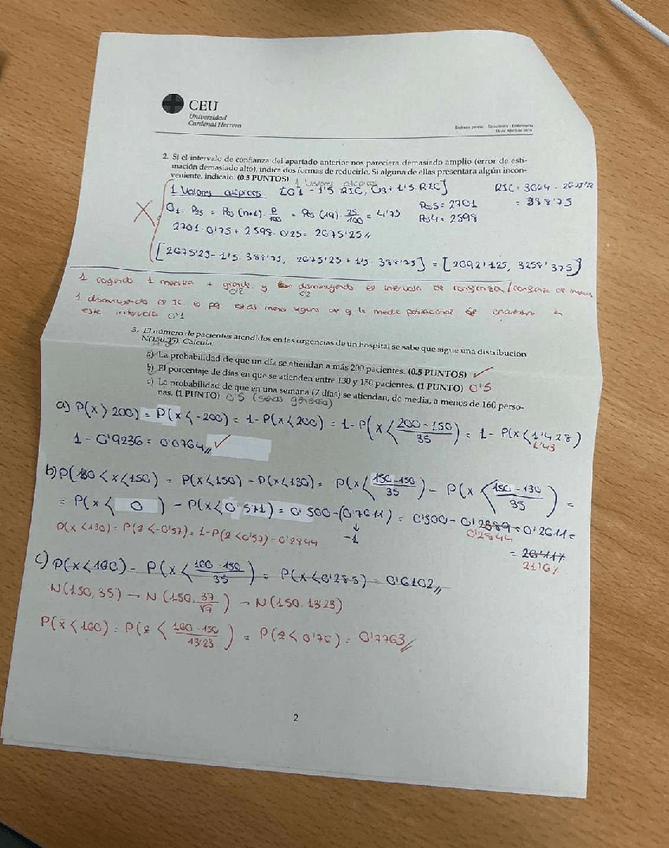 CEU
Universidad
Cardenal Herrera
2. Si el intervalo de confianza del apartado anterior nos pareciera demasiado amplio (error de esti-
mación demasiado alto), indica dos formas de reducirlo. Si alguna de ellas presentara algún incon-
veniente, indícalo. (0.5 PUNTOS)
1 Valores atípicos [Q1 - 1'5 RIC, Q3 + 1'5 RIC]
RIC = 3064 -
= 388'75
P25 = (n+1) · = (19) · 25/100 = 4'75
= 2701
= 2598
2701 · 0'75 + 2598 · 0'25 = 2675'25
[2675'25 - 1'5 · 388'75, 2675'25 + 1'5 · 388'75] = [2092'125, 3258'375]
1 cogiendo 1 muestra + grande y disminuyendo el intervalo de confianza /
1 disminuyendo el IC lo es más seguro de q la media poblacional se encuentra en
este intervalo 0'1
3. El número de pacientes atendidos en las urgencias de un hospital se sabe que sigue una distribución
N(150,35). Calcula:
a) La probabilidad de que un día se atiendan a más 200 pacientes. (0.5 PUNTOS) ✓
b) El porcentaje de días en que se atienden entre 130 y 150 pacientes. (1 PUNTO) 0'5
c) La probabilidad de que en una semana (7 días) se atiendan, de media, a menos de 160 perso-
nas. (1 PUNTO) 0'5
a) P(x > 200) = P(x < -200) = 1 - P(x < 200) = 1 - P(x < 200 - 150 / 35) = 1 - P(x < 1'428)
1'43
1 - 0'9236 = 0'0764 ✓
b) P(130 < x < 150) = P(x < 150) - P(x < 130) = P(x < 150 - 150 / 35) - P(x < 150 - 130 / 35) =
= P(x < 0) - P(x < 0'571) = 0'500 - (0'7611) = 0'500 - 0'2389 = 0'2611 =
-1 0'2844
P(x < 130) = P(z < -0'57) = 1 - P(z < 0'57) = 0'2844
= 26'11%
21'16%
c) P(x < 160) - P(x < 160 - 150 / 35) = P(x < 0'285) = 0'6102
N(150, 35) → N(150, 37 / √7) → N(150, 13'23)
P(x̄ < 160) = P(z < 160 - 150 / 13'23) = P(z < 0'76) = 0'7763
2